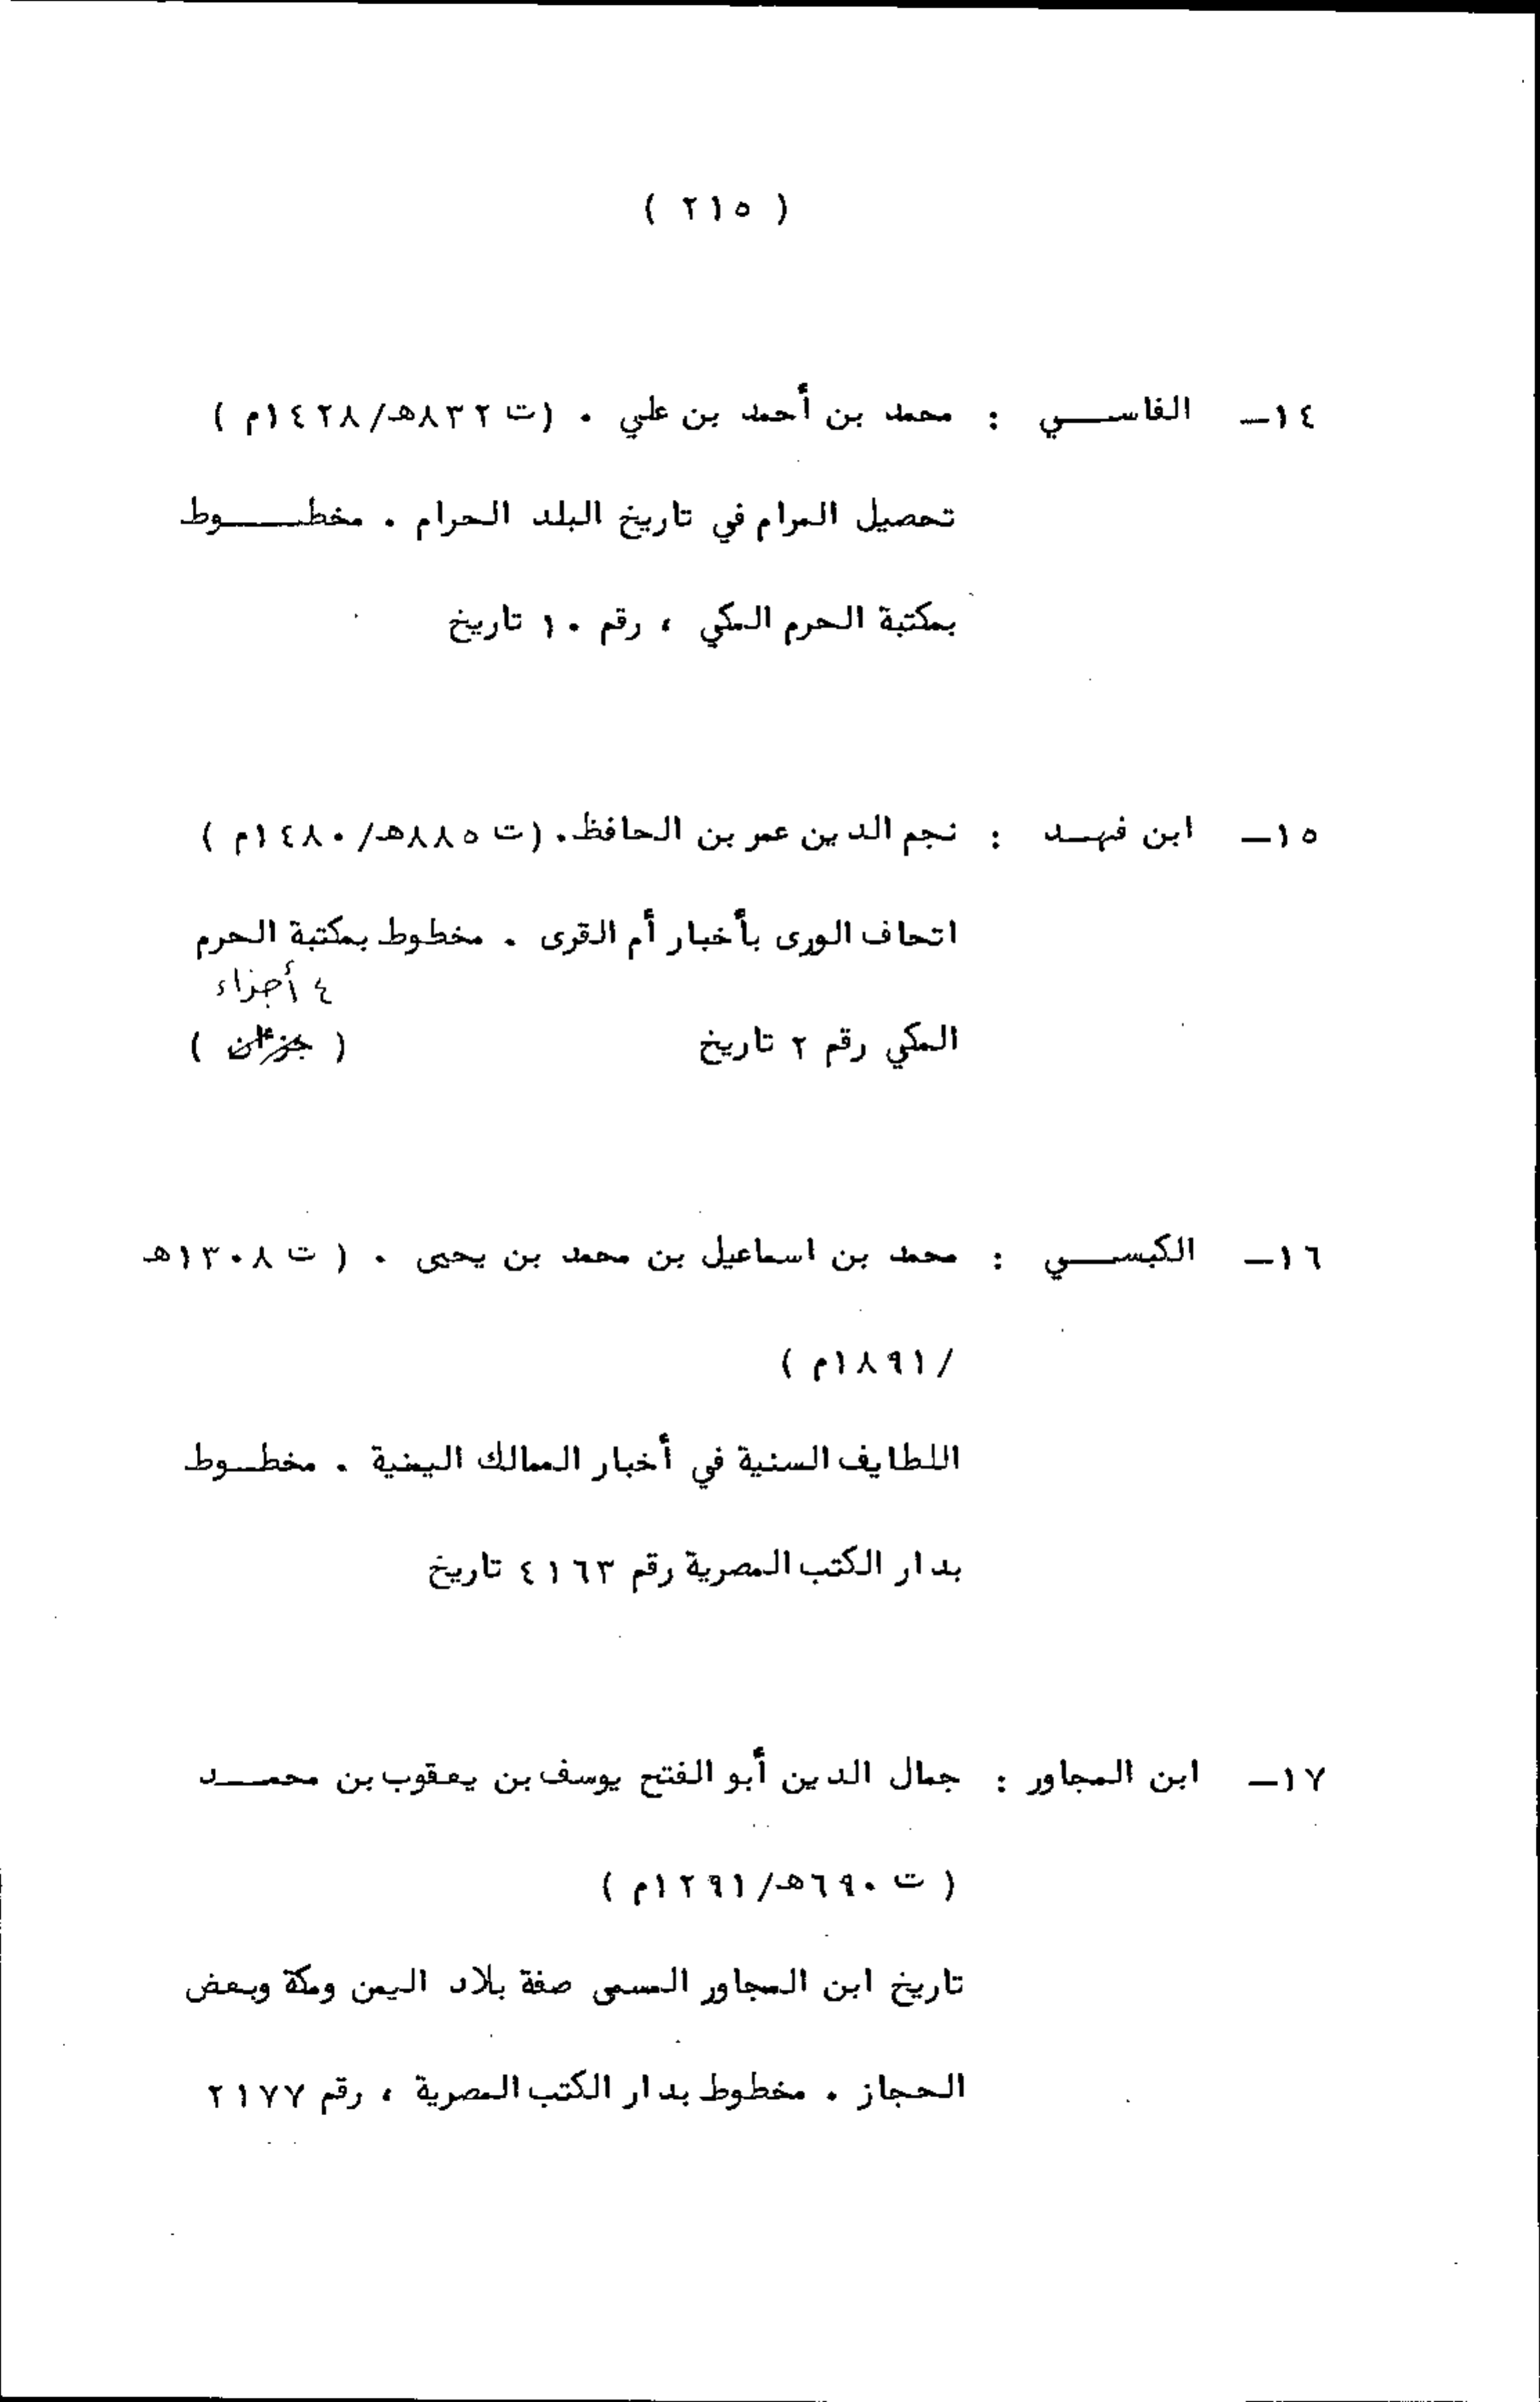 ( ٢١٥ )
١٤ـ الفاسـي : محمد بن أحمد بن علي . (ت ٨٣٢هـ/١٤٢٨م )
تحصيل المرام في تاريخ البلد الحرام . مخطـوط
بمكتبة الحرم المكي ، رقم ١٠ تاريخ
١٥ـ ابن فهـد : نجم الدين عمر بن الحافظ. (ت ٨٨٥هـ/١٤٨٠م )
اتحاف الورى بأخبار أم القرى . مخطوط بمكتبة الحرم
٤ أجزاء
المكي رقم ٢ تاريخ ( جزءان )
١٦ـ الكبسـي : محمد بن اسماعيل بن محمد بن يحيى . ( ت ١٣٠٨هـ
/١٨٩١م )
اللطايف السنية في أخبار الممالك اليمنية . مخطـوط
بدار الكتب المصرية رقم ٤١٦٣ تاريخ
١٧ـ ابن المجاور : جمال الدين أبو الفتح يوسف بن يعقوب بن محمـد
( ت ٦٩٠هـ/١٢٩١م )
تاريخ ابن المجاور المسمى صفة بلاد اليمن ومكة وبعض
الحجاز . مخطوط بدار الكتب المصرية ، رقم ٢١٧٧